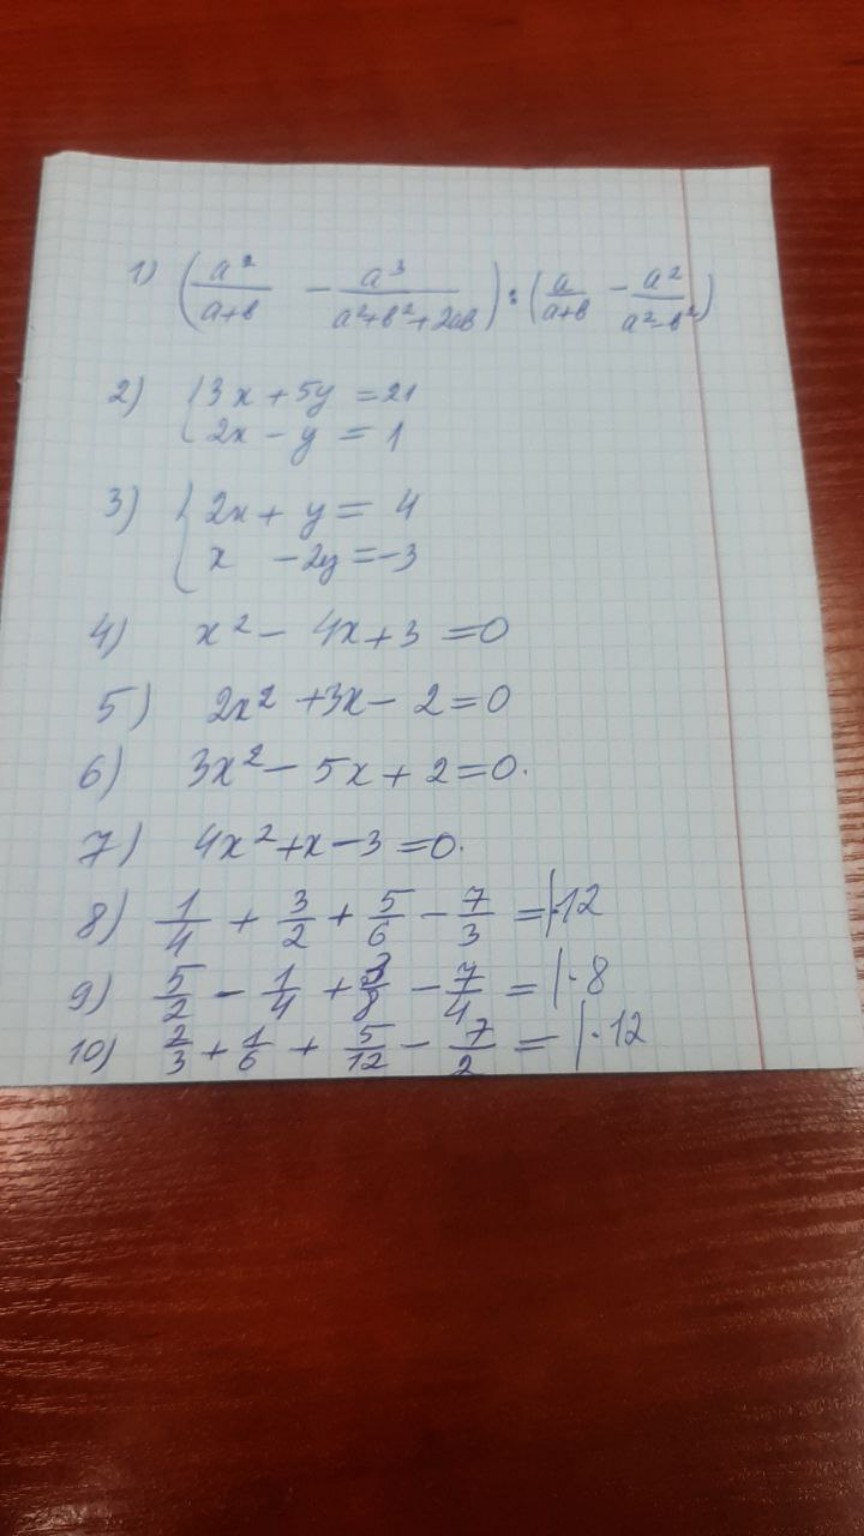 1) (a²/(a+b) - a³/(a²+b²+2ab)) : (a/(a+b) - a²/(a²-b²))
2) { 3x + 5y = 21
2x - y = 1
3) { 2x + y = 4
x - 2y = -3
4) x² - 4x + 3 = 0
5) 2x² + 3x - 2 = 0
6) 3x² - 5x + 2 = 0.
7) 4x² + x - 3 = 0.
8) 1/4 + 3/2 + 5/6 - 7/3 = |·12
9) 5/2 - 1/4 + 3/8 - 7/4 = |·8
10) 2/3 + 1/6 + 5/12 - 7/2 = |·12